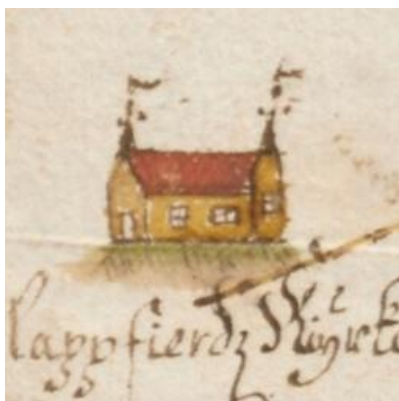 lappfierdz Kÿrke